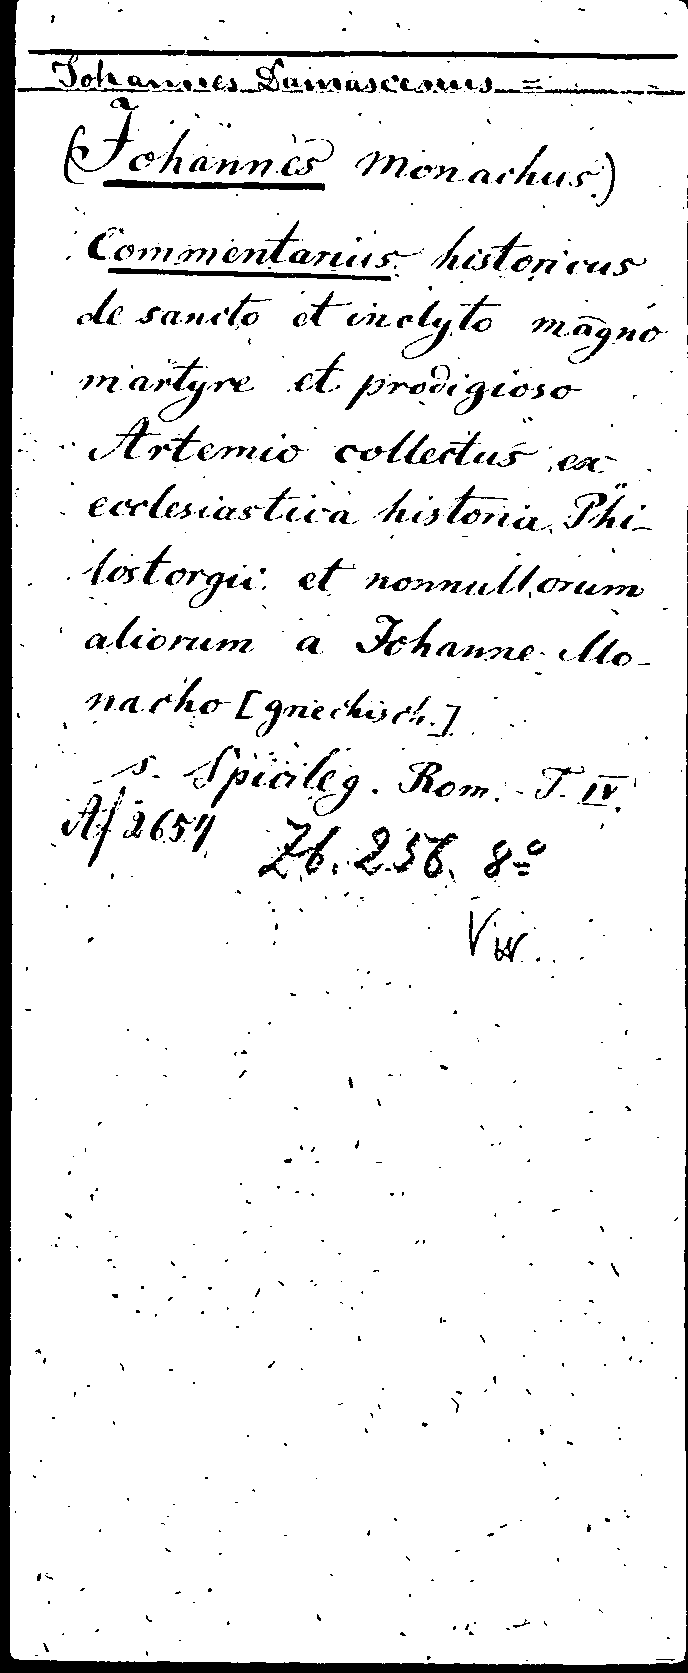 Johannes Damascenus =
(Johannes Monachus.)
Commentarius historicus
de sancto et inclyto magno
martyre et prodigioso
Artemio collectus ex
ecclesiastica historia Phi-
lostorgii et nonnullorum
aliorum a Johanne Mo-
nacho [griechisch.]
s. Spicileg. Rom. T. IV.
Af 2657
Zb. 256. 8º